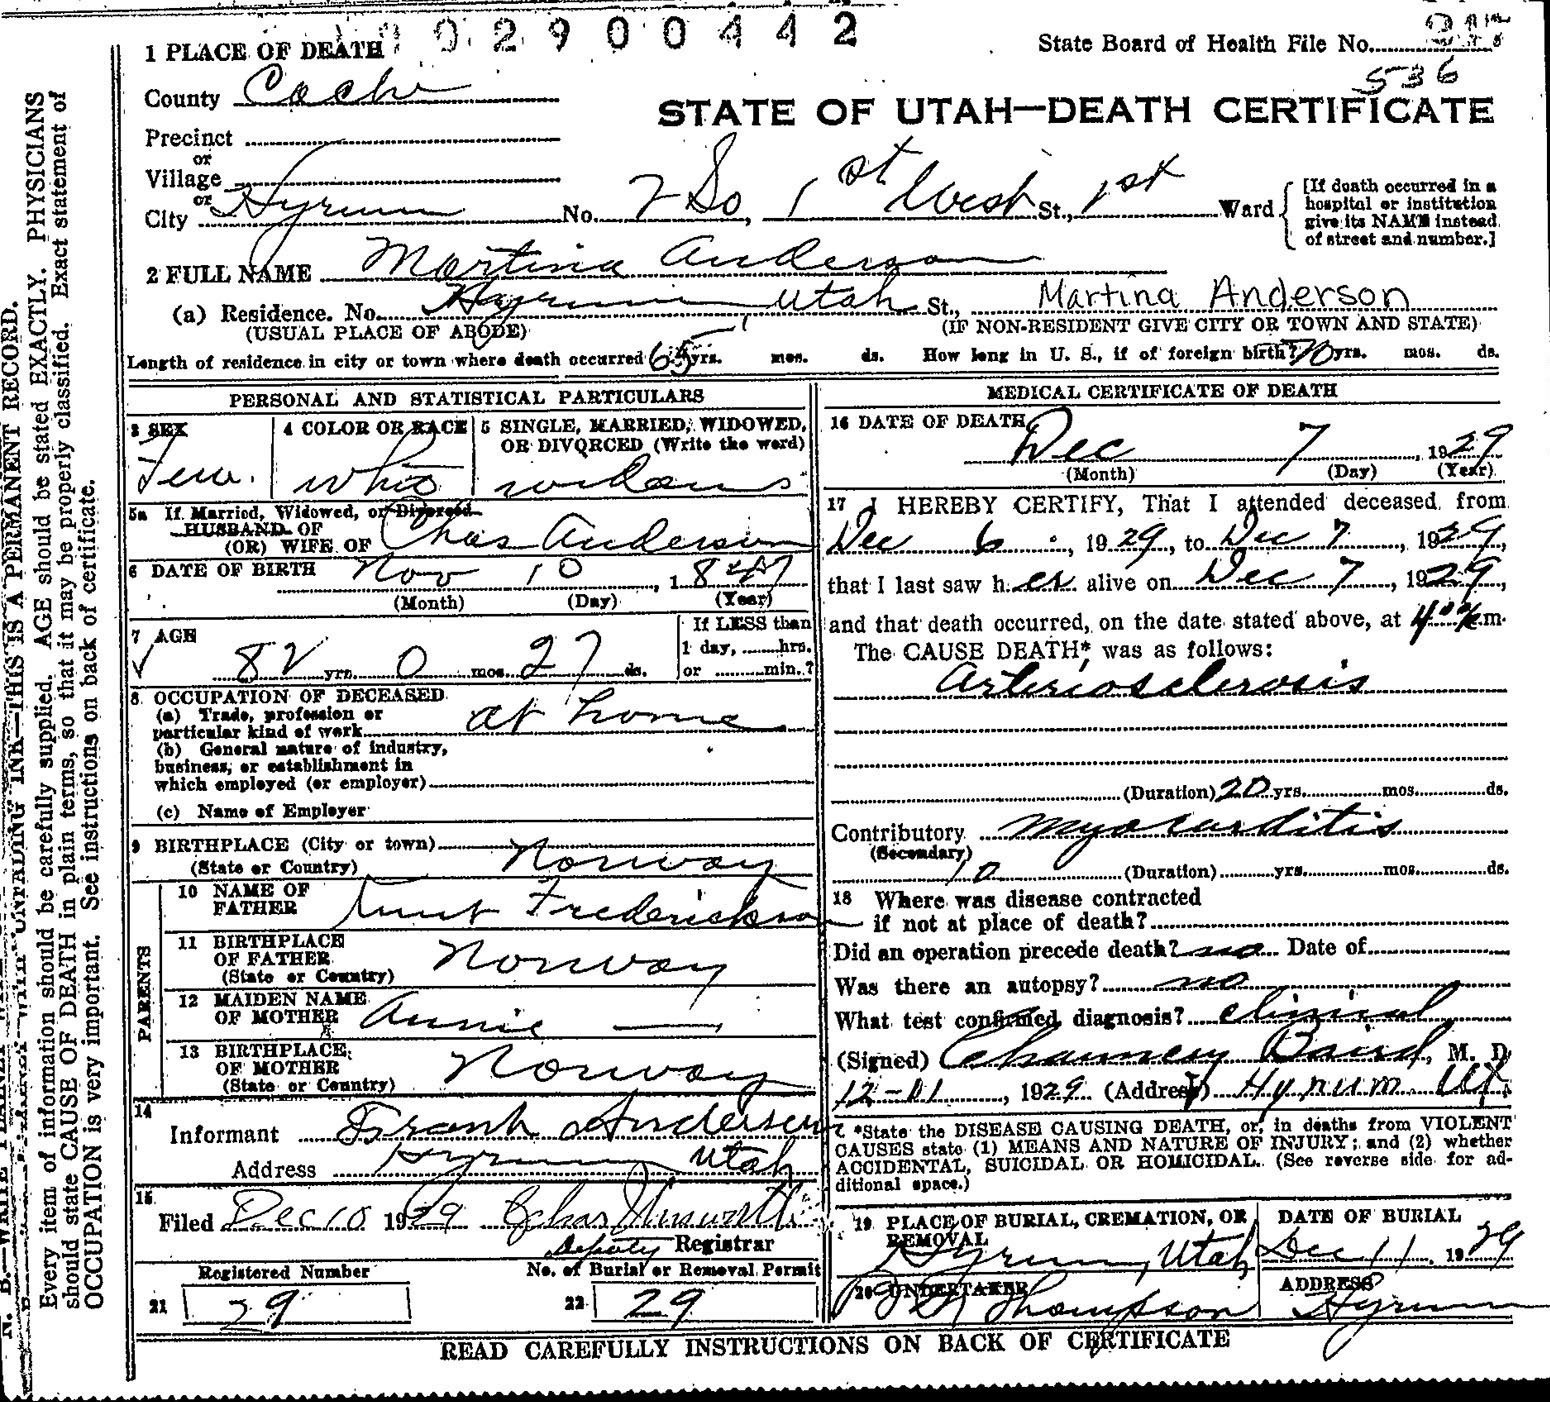 902900442
1 PLACE OF DEATH
State Board of Health File No.
536
County Cache
STATE OF UTAH—DEATH CERTIFICATE
Precinct
or
Village
or
City Hyrum No. 2 So, 1st West St., 1st Ward
[If death occurred in a hospital or institution give its NAME instead of street and number.]
2 FULL NAME Martina Anderson
(a) Residence. No. Hyrum Utah St., Martina Anderson
(USUAL PLACE OF ABODE) (IF NON-RESIDENT GIVE CITY OR TOWN AND STATE)
Length of residence in city or town where death occurred 65 yrs. mos. ds. How long in U. S., if of foreign birth? 70 yrs. mos. ds.
PERSONAL AND STATISTICAL PARTICULARS
3 SEX Fem.
4 COLOR OR RACE white
5 SINGLE, MARRIED, WIDOWED, OR DIVORCED (Write the word)
widow
5a If Married, Widowed, or Divorced
HUSBAND OF
(OR) WIFE OF Chas Anderson
6 DATE OF BIRTH Nov 10, 1847
(Month) (Day) (Year)
7 AGE
82 yrs. 0 mos. 27 ds.
If LESS than 1 day, hrs. or min.?
8 OCCUPATION OF DECEASED
(a) Trade, profession or particular kind of work at home
(b) General nature of industry, business, or establishment in which employed (or employer)
(c) Name of Employer
9 BIRTHPLACE (City or town)
(State or Country) Norway
PARENTS
10 NAME OF FATHER Knut Frederickson
11 BIRTHPLACE OF FATHER (State or Country) Norway
12 MAIDEN NAME OF MOTHER Annie —
13 BIRTHPLACE OF MOTHER (State or Country) Norway
14
Informant Frank Anderson
Address Hyrum Utah
15
Filed Dec 10 1929
Deputy Registrar
Registered Number
21 29
No. of Burial or Removal Permit
22 29
MEDICAL CERTIFICATE OF DEATH
16 DATE OF DEATH
Dec 7, 1929
(Month) (Day) (Year)
17 I HEREBY CERTIFY, That I attended deceased from
Dec 6, 1929, to Dec 7, 1929,
that I last saw h er alive on Dec 7, 1929,
and that death occurred, on the date stated above, at 4 m.
The CAUSE DEATH*, was as follows:
Arteriosclerosis
(Duration) 20 yrs. mos. ds.
Contributory myocarditis
(Secondary)
10 (Duration) yrs. mos. ds.
18 Where was disease contracted
if not at place of death?
Did an operation precede death? no Date of
Was there an autopsy? no
What test confirmed diagnosis? clinical
(Signed) Chauncey Baird, M. D.
12-11, 1929 (Address) Hyrum Ut.
*State the DISEASE CAUSING DEATH, or, in deaths from VIOLENT
CAUSES state (1) MEANS AND NATURE OF INJURY; and (2) whether
ACCIDENTAL, SUICIDAL OR HOMICIDAL. (See reverse side for ad-
ditional space.)
19 PLACE OF BURIAL, CREMATION, OR REMOVAL
Hyrum, Utah
DATE OF BURIAL
Dec 11 1929
20 UNDERTAKER
Thompson
ADDRESS
Hyrum
READ CAREFULLY INSTRUCTIONS ON BACK OF CERTIFICATE
THIS IS A PERMANENT RECORD.
Every item of information should be carefully supplied. AGE should be stated EXACTLY. PHYSICIANS
should state CAUSE OF DEATH in plain terms, so that it may be properly classified. Exact statement of
OCCUPATION is very important. See instructions on back of certificate.